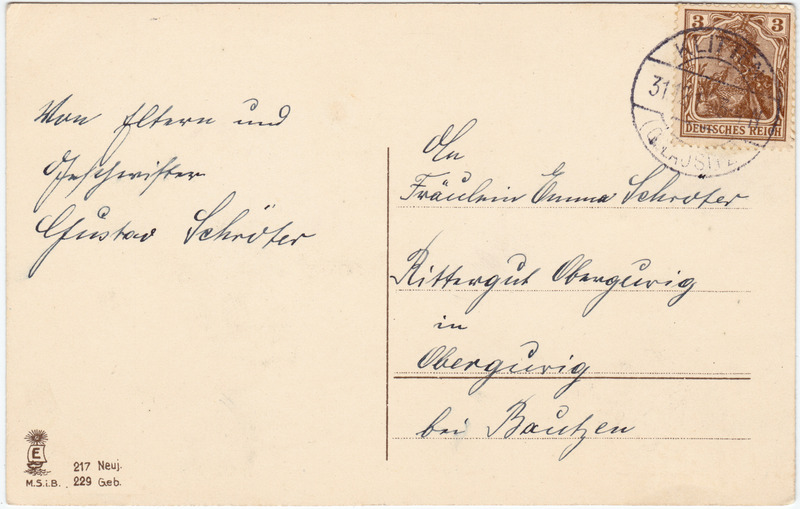 Von Eltern und
Geschwister
Gustav Schröter
An
Fräulein Emma Schröter
Rittergut Obergurig
in
Obergurig
bei Bautzen
3 3
DEUTSCHES REICH
KLITTEN
31.
(O.LAUSITZ)
E
M.S.i.B.
217 Neuj.
229 Geb.